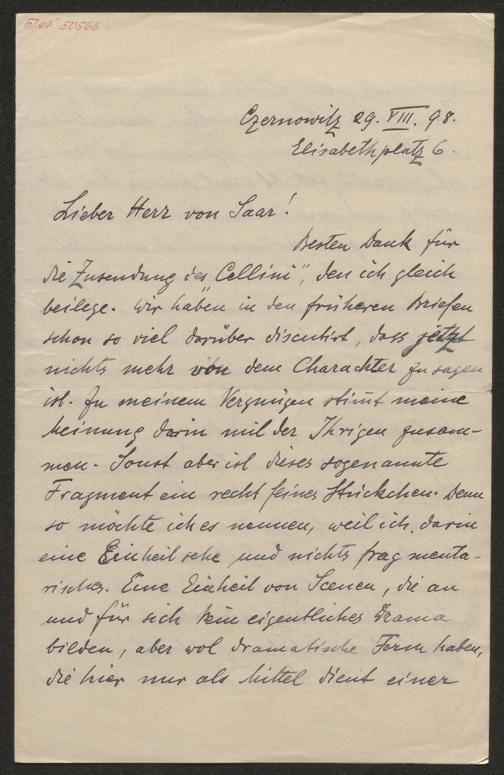 Czernowitz 29. VIII. 98.
Elisabethplatz 6.
Lieber Herr von Saar!
Besten Dank für
die Zusendung des "Cellini", den ich gleich
beilege. Wir haben in den früheren Briefen
schon so viel darüber discutirt, dass jetzt
nichts mehr von dem Charakter zu sagen
ist. Zu meinem Vergnügen stimt meine
Meinung darin mit der Ihrigen zusam-
men. Sonst aber ist dieses sogenannte
Fragment ein recht feines Stückchen. Denn
so möchte ich es nennen, weil ich darin
eine Einheit sehe und nichts fragmenta-
risches. Eine Einheit von Scenen, die an
und für sich kein eigentliches Drama
bilden, aber wol dramatische Form haben,
die hier nur als Mittel dient einer